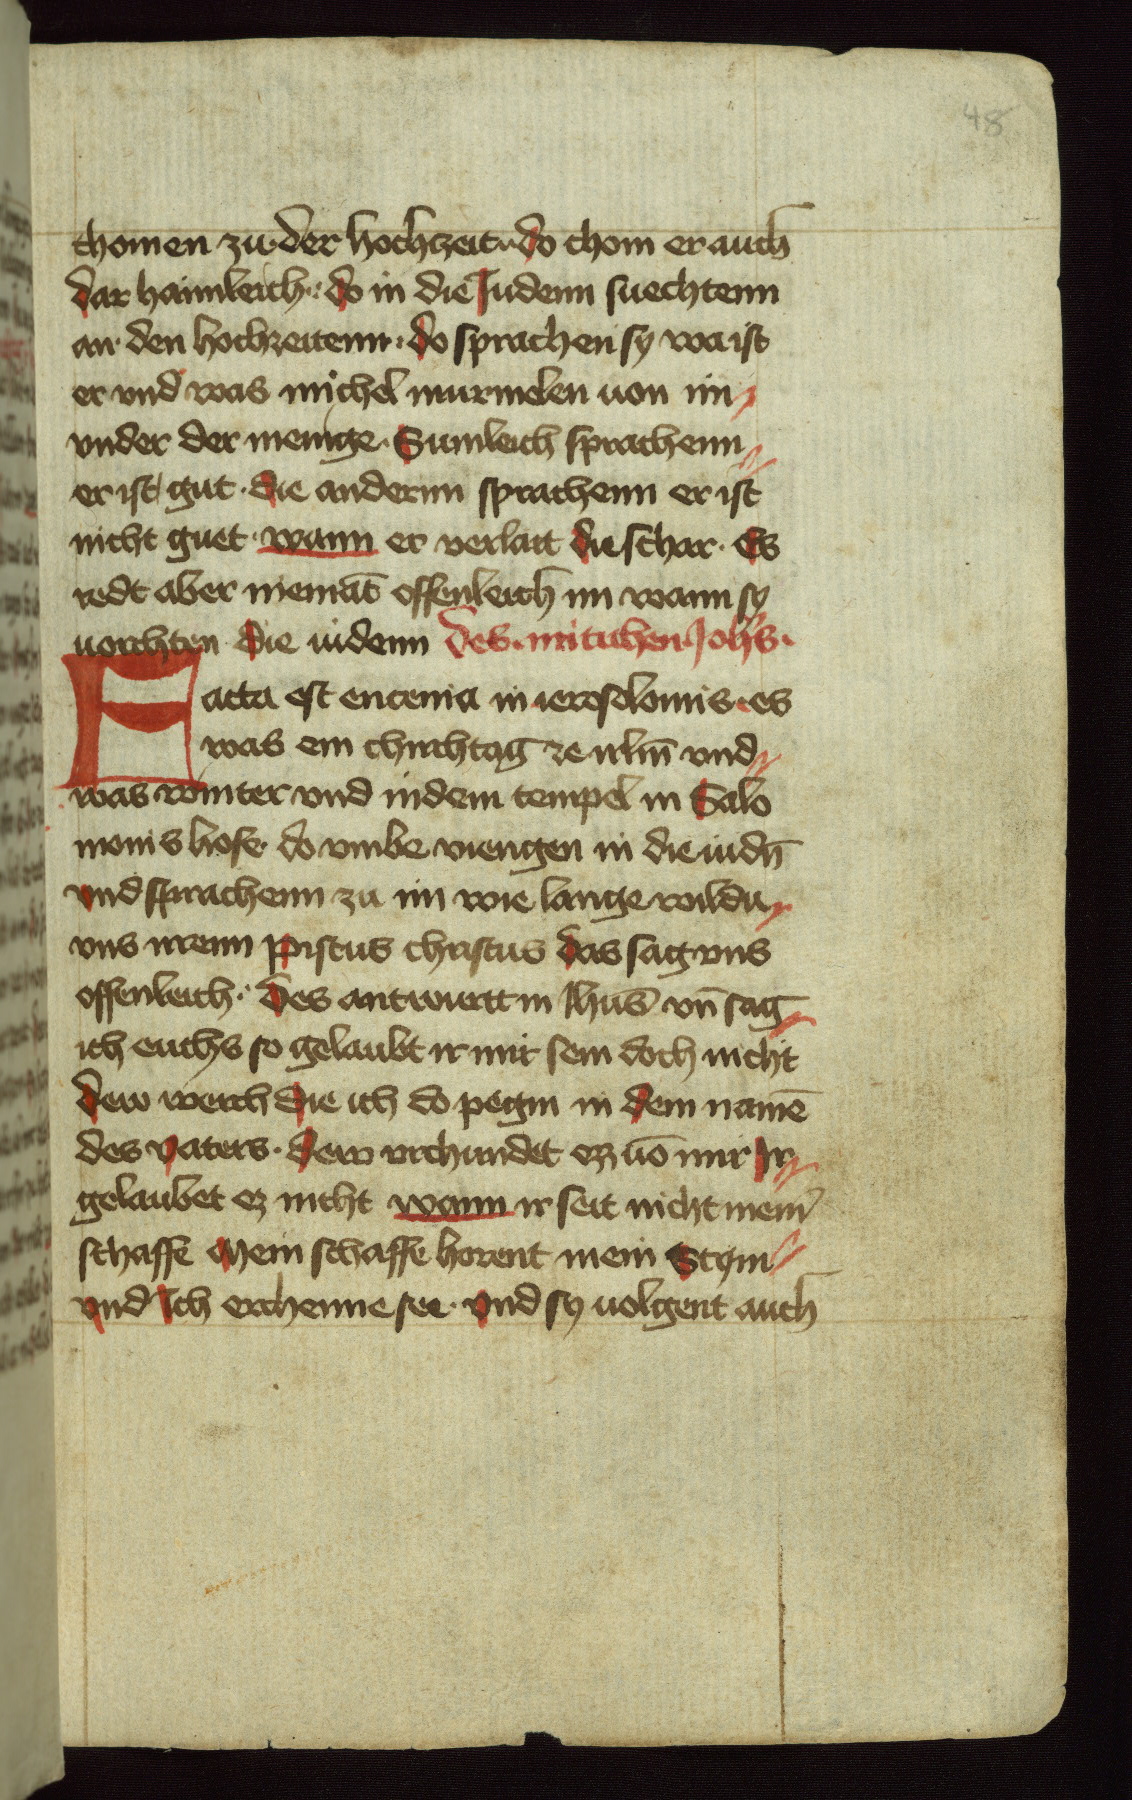 48
chomen zu der hochzeit· do chom er auch
dar haimleich· do in die Judenn suechtenn
an den hochzeitenn· do sprachen sy wa ist
er vnd was michel murmelen uon im
vnder der menige· Sumleich sprachenn
er ist gut· die andernn sprachenn er ist
nicht guet· wann er verlait die schar· Es
redt aber niemāt offenleich im wann sy
uorchten die iudenn Des· mitichen· Joh̄s·
Facta est encenia in ierosolomis· es
was ein chirchtag ze irlm̄ vnd
was winter vnd in dem tempel in Salo
monis hofe· do vmbe viengen in die iudn̄
vnd sprachenn zu im wie lange wildu
vns irrenn pistus christus das sag vns
offenleich· Des antwurtt in Ihūs vn̄ sag
ich euchs so gelaubt ir mir sein doch nicht
dew werch die ich do pegin in dem namē
des vaters· dew vrchundet ez uō mir Ir
gelaubet ez nicht wann ir seit nicht meinr
schaffe Mein schaffe horent mein Stym
vnd Ich erchenne see· vnd sy uolgent auch